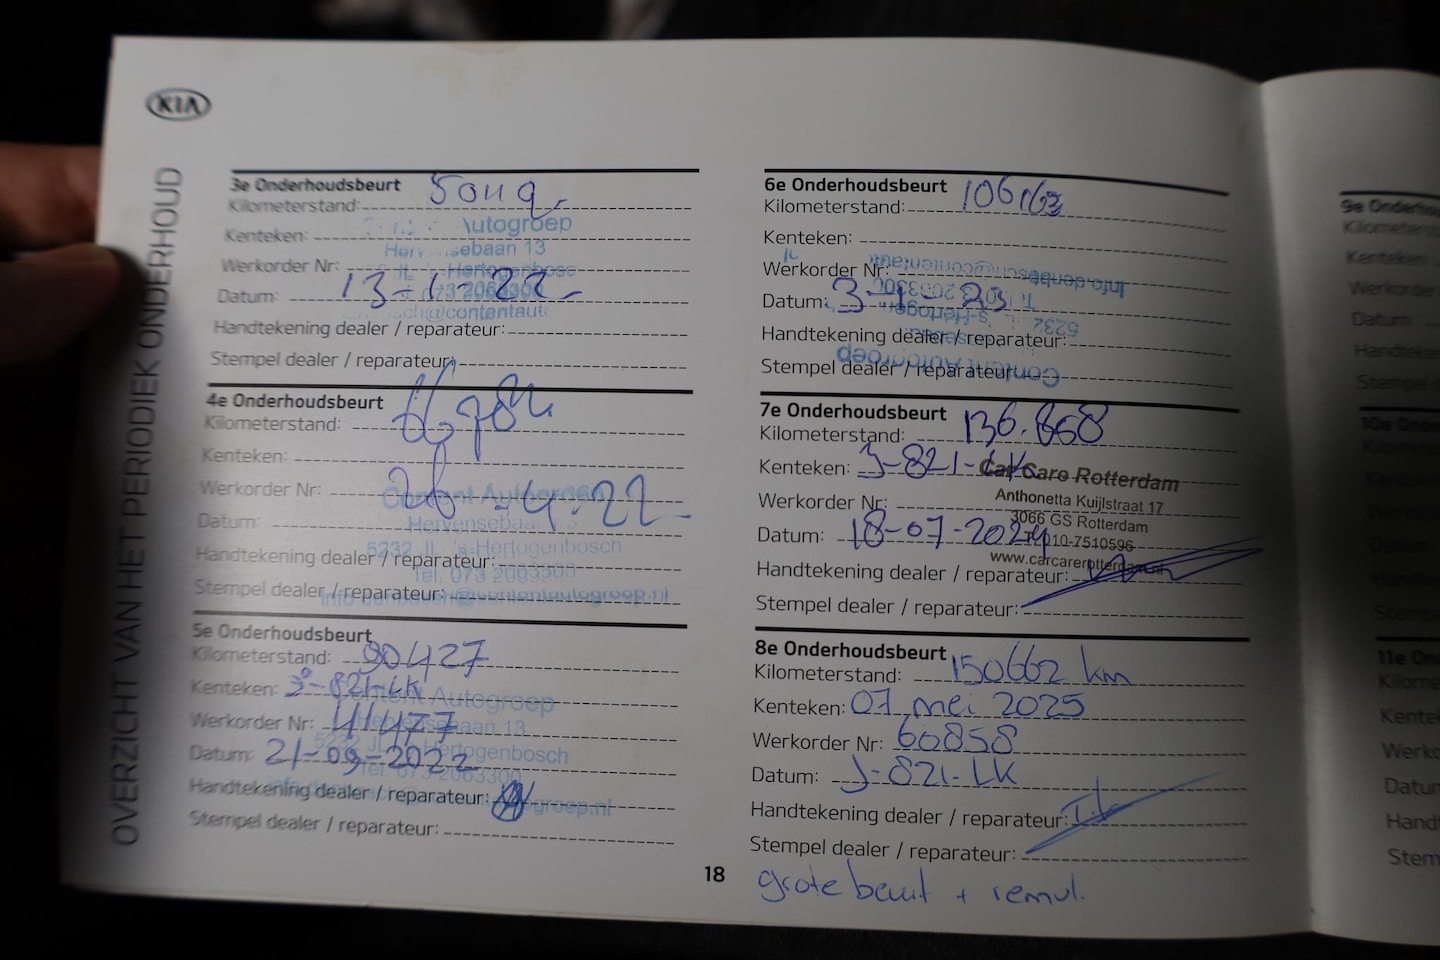 KIA
OVERZICHT VAN HET PERIODIEK ONDERHOUD
3e Onderhoudsbeurt
Kilometerstand:
Kenteken: Autogroep
Hervensebaan 13
Werkorder Nr: 's-Hertogenbosc
Datum: 13-1-22
073 2063300
@contentaut
Handtekening dealer / reparateur:
Stempel dealer / reparateur:
4e Onderhoudsbeurt
Kilometerstand:
Kenteken:
Werkorder Nr: 26-4-22
Content Autogroep
Datum: Hervensebaan 13
5232 JL 's-Hertogenbosch
Handtekening dealer / reparateur:
Tel. 073 2063300
Stempel dealer / reparateur:
info-denbosch@contentautogroep.nl
5e Onderhoudsbeurt
Kilometerstand: 90427
Kenteken: J-821-LK
Content Autogroep
Werkorder Nr: 411477
Hervensebaan 13
Datum: 21-09-2022
5232 JL 's-Hertogenbosch
Tel. 073 2063300
Handtekening dealer / reparateur:
Stempel dealer / reparateur:
6e Onderhoudsbeurt
Kilometerstand: 106163
Kenteken:
Werkorder Nr:
info-denbosch@contentaut
Datum: 3-1-23
Handtekening dealer / reparateur:
Stempel dealer / reparateur:
Content Autogroep
7e Onderhoudsbeurt
Kilometerstand: 136.868
Kenteken: J-821-LK
Car Care Rotterdam
Anthonetta Kuijlstraat 17
Werkorder Nr:
3066 GS Rotterdam
Datum: 18-07-2024
010-7510596
www.carcarerotterdam.nl
Handtekening dealer / reparateur:
Stempel dealer / reparateur:
8e Onderhoudsbeurt
Kilometerstand: 150662 km
Kenteken: 07 mei 2025
Werkorder Nr: 60858
Datum: J-821-LK
Handtekening dealer / reparateur:
Stempel dealer / reparateur:
grote beurt + remvl.
18
9e Onderhou
Kilometerstand
Kenteken
Werkorder
Datum:
Handteke
Stempel d
10e Ond
11e On
Kilome
Kente
Werko
Datur
Hand
Stem